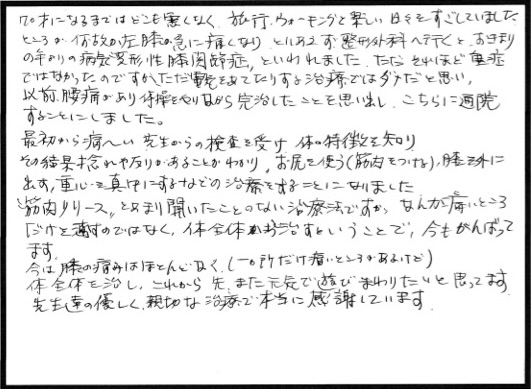 70才になるまではどこも悪くなく、旅行、ウォーキングと楽しい日々をすごしていました
ところが、何故か左膝が急に痛くなり、とりあえず整形外科へ行くと、お決まり
の年よりの病気変形性膝関節症、といわれました。ただ、それほど重症
ではなかったのですが、ただ電気をあてたりする治療ではダメだと思い、
以前、腰痛があり体操をやりながら完治したことを思い出し、こちらに通院
することにしました。
最初から痛へい 先生からの検査を受け 体の特徴を知り
その結果捻れや反りがあることがわかり、お尻を使う(筋肉をつける)、膝を外に
出す、重心を真中にするなどの治療をすることになりました
"筋肉リリース"とあまり聞いたことのない治療法ですが、なんか痛いところ
だけを通すのではなく、体全体から治すということで、今もがんばって
ます。
今は膝の痛みはほとんどなく、(一ヶ所だけ痛いところがあるけど)
体全体を治し、これから先、また元気で遊びまわりたいと思ってます
先生達の優しく、親切な治療で本当に感謝しています。